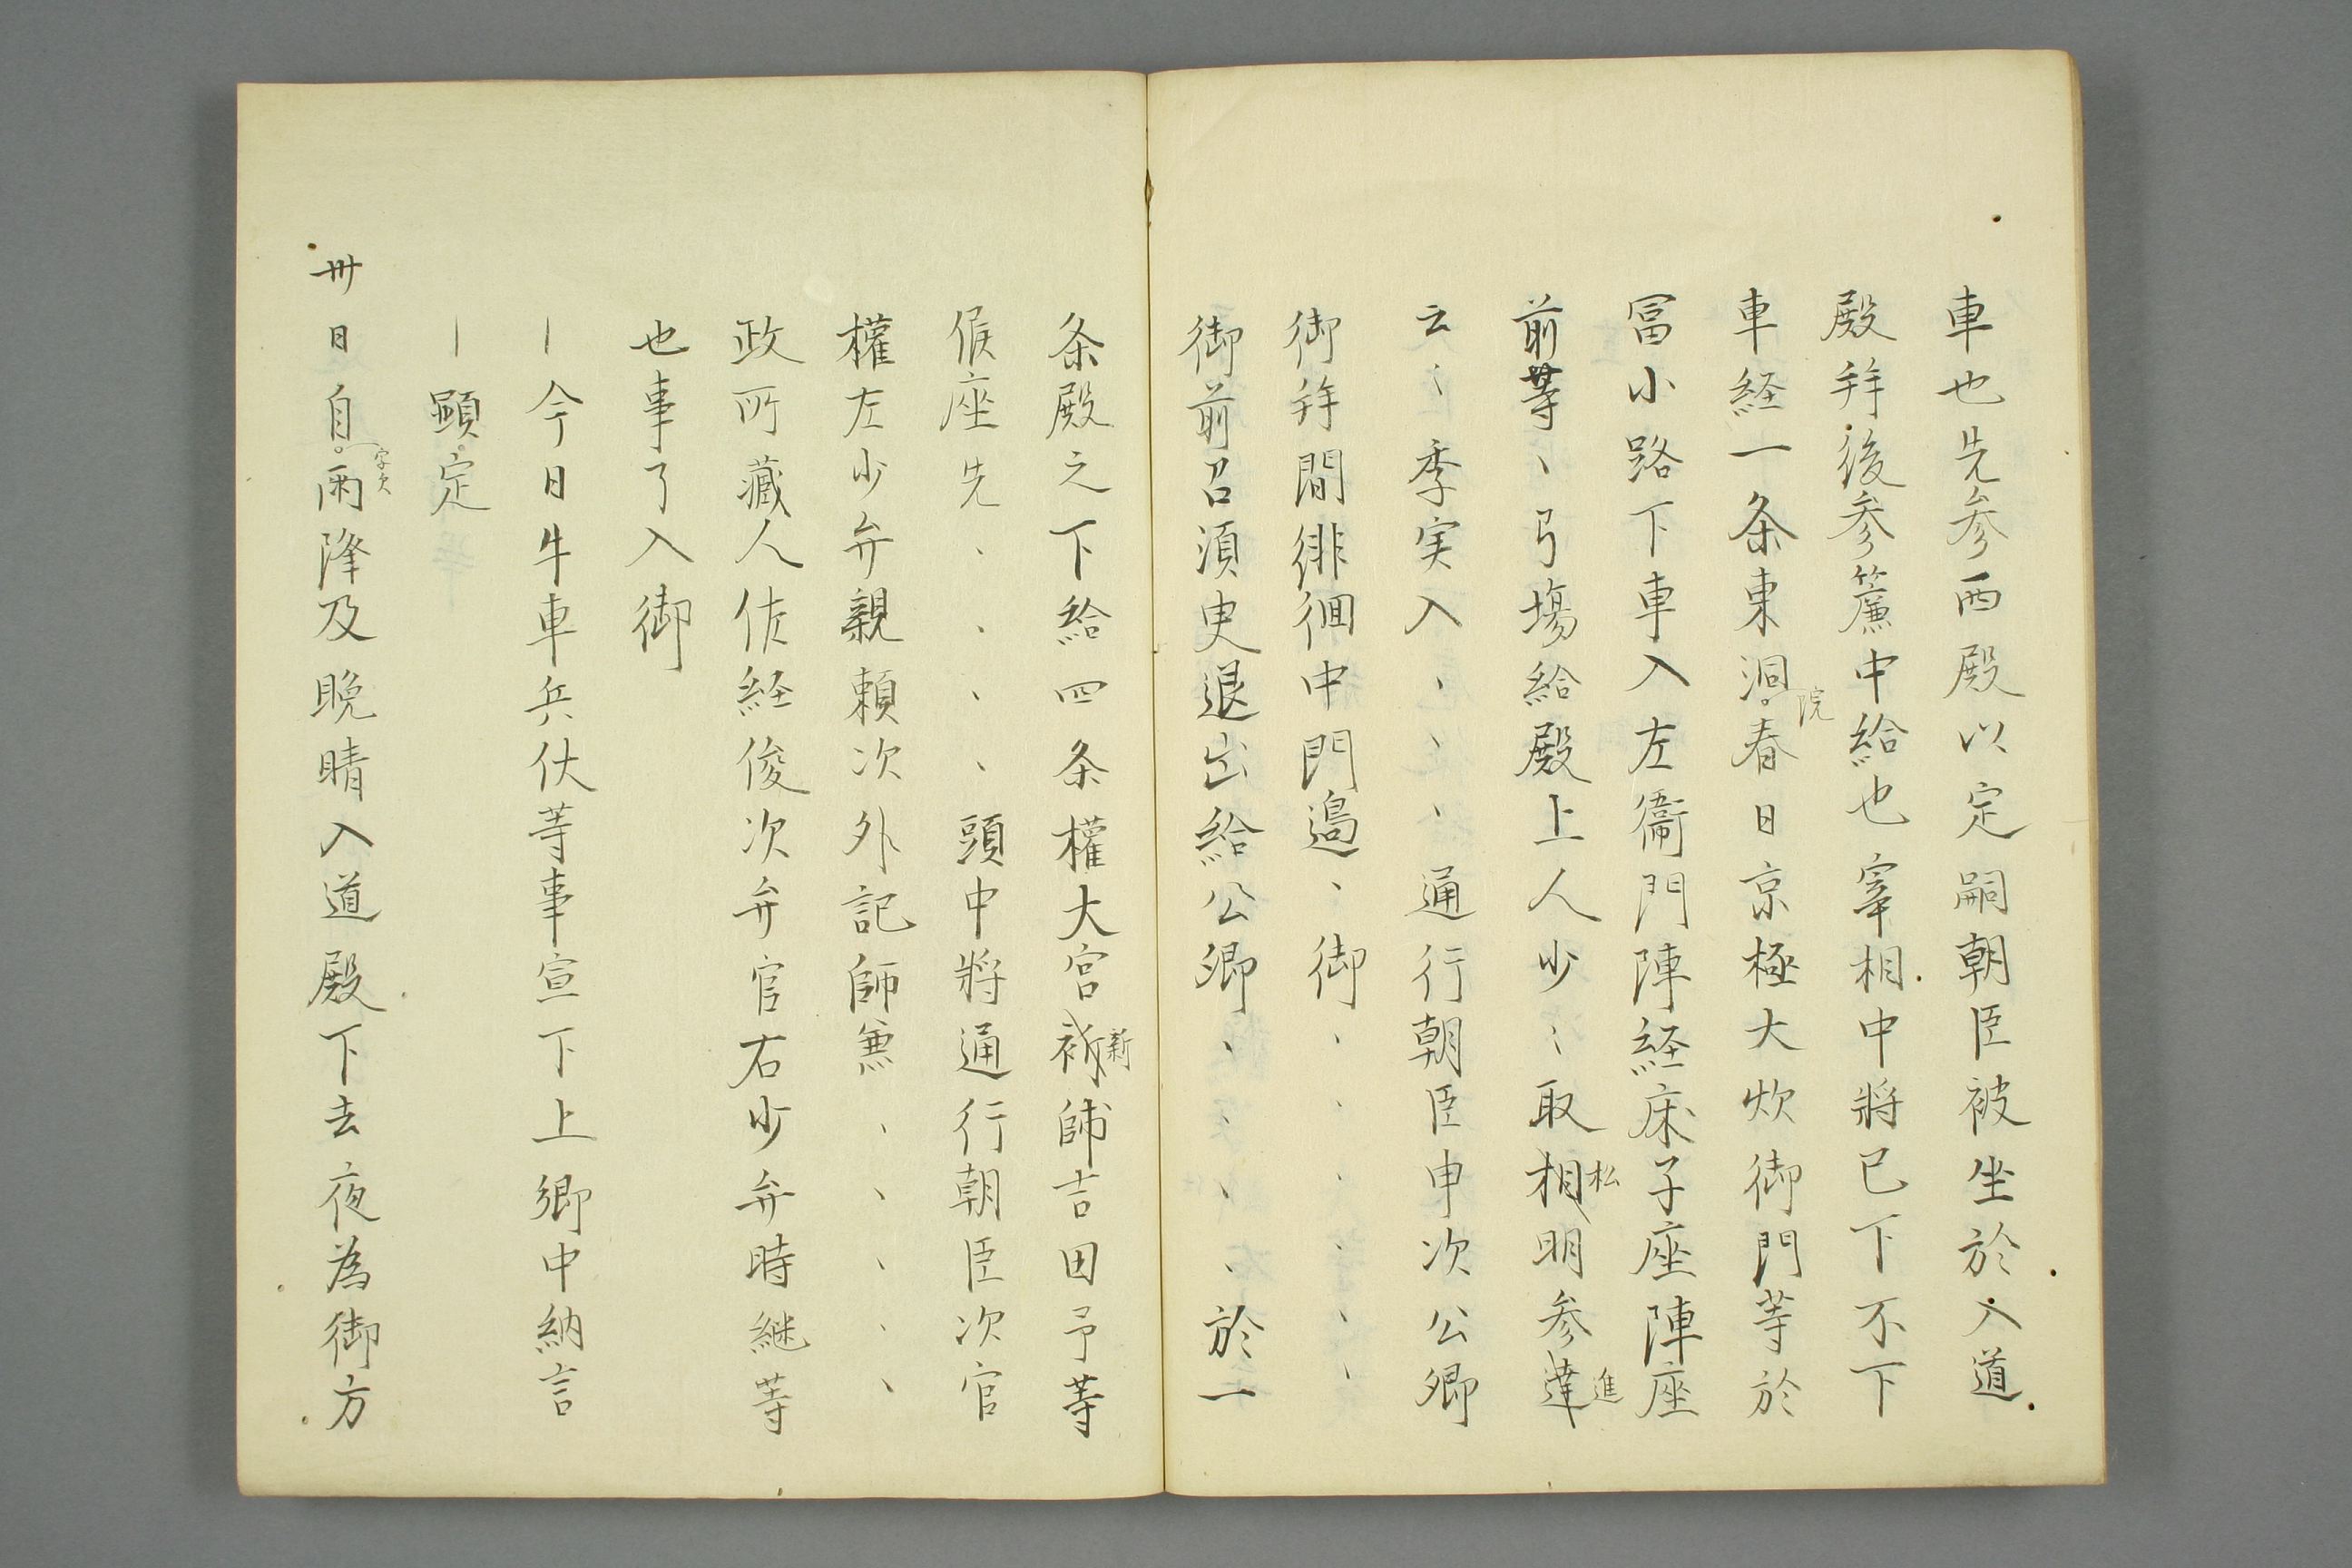 車也先参西殿以定嗣朝臣被坐於入道
殿拝後参簾中給也宰相中将已下不下
車経一条東洞院春日京極大炊御門等於
冨小路下車入左衞門陣経床子座陣座
前等、弓場給殿上人少〻取松明参進
云〻季実入、、、通行朝臣申次公卿
御拝間徘徊中門邉、御、、、、、
御前召須臾退出給公卿、、、、於一
条殿之下給四条權大宮新師吉田予等
候座先、、、、頭中将通行朝臣次官
權左少弁親頼次外記師兼、、、、、
政所藏人佐経俊次弁官右少弁時継等
也事了入御
｜今日牛車兵仗等事宣下上卿中納言
｜顕定
卅日自雨降及晩晴入道殿下去夜為御方